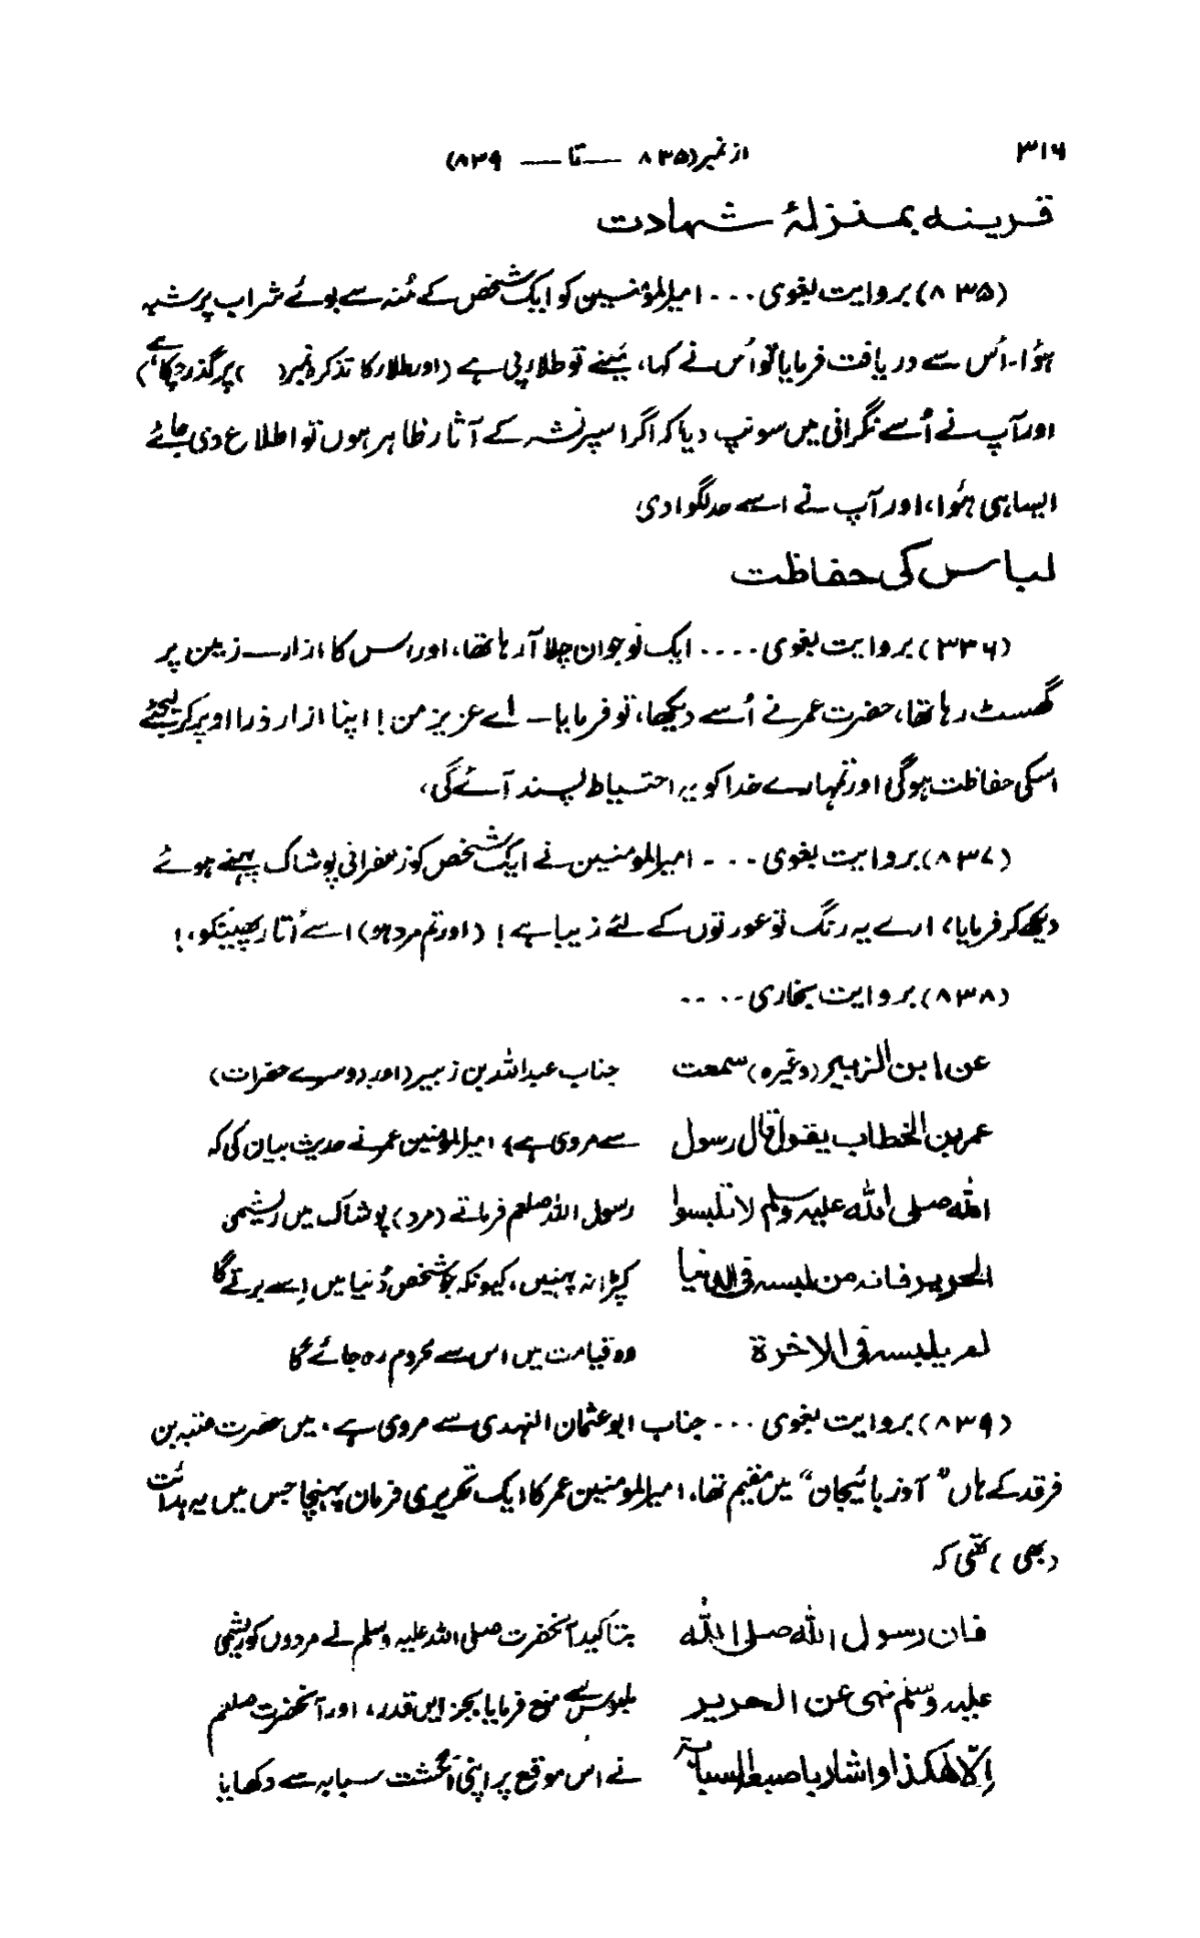 ۳۱۶
از نمبر (۸۳۵ — تا — ۸۳۹)
قرینہ بمنزلۂ شہادت
(۸۳۵) بروایت بغوی ... امیرالمؤمنین کو ایک شخص کے مُنہ سے بوئے شراب پر شبہ
ہؤا۔ اُس سے دریافت فرمایا تو اُس نے کہا، مَینے تو طلا پی ہے (اور طلار کا تذکرہ نمبر( ) پر گذر چکا ہے)
اور آپ نے اُسے نگرانی میں سونپ دیا کہ اگر اسپر نشہ کے آثار ظاہر ہوں تو اطلاع دی جائے
ایسا ہی ہُوا، اور آپ نے اسے حد لگوا دی
لباس کی حفاظت
(۳۳۶) بروایت بغوی .... ایک نوجوان چلا آ رہا تھا، اور اس کا ازار — زمین پر
گھسٹ رہا تھا، حضرت عمر نے اُسے دیکھا، تو فرمایا — اے عزیز من! اپنا ازار ذرا اوپر کر لیجئے
اسکی حفاظت ہوگی اور تمہارے خدا کو یہ احتیاط پسند آئے گی،
(۸۳۷) بروایت بغوی ... امیرالمومنین نے ایک شخص کو زعفرانی پوشاک پہنے ہوئے
دیکھ کر فرمایا، ارے یہ رنگ تو عورتوں کے لئے زیبا ہے! (اور تم مرد ہو) اسے اُتار پھینکو،!
(۸۳۸) بروایت بخاری ....
عن ابن الزبیر (وغیرہ) سمعت جناب عبداللہ بن زبیر (اور دوسرے حضرات)
عمر بن الخطاب یقول قال رسول سے مروی ہے، امیرالمؤمنین عمر نے حدیث بیان کی کہ
اللہ صلی اللہ علیہ وسلم لا تلبسوا رسول اللہ صلعم فرماتے (مرد) پوشاک میں ریشمی
الحریر فانہ من لبسہ فی الدنیا کپڑا نہ پہنیں، کیونکہ جو شخص دُنیا میں اِسے برتے گا
لم یلبسہ فی الاخرۃ وہ قیامت میں اس سے محروم رہ جائے گا
(۸۳۹) بروایت بغوی ... جناب ابو عثمان النہدی سے مروی ہے، میں حضرت عتبہ بن
فرقد کے ہاں "آذربائیجان" میں مقیم تھا، امیرالمومنین عمر کا ایک تحریری فرمان پہنچا جس میں یہ ہدائت
(بھی) تھی کہ
فان رسول اللہ صلی اللہ بتاکید آنحضرت صلی اللہ علیہ وسلم نے مردوں کو ریشمی
علیہ وسلم نہی عن الحریر ملبوس سے منع فرمایا بجز ایں قدر، اور آنحضرت صلعم
اِلّا ھکذا و اشار باصبعہ السبابۃ نے اس موقع پر اپنی انگشت سبابہ سے دکھایا: